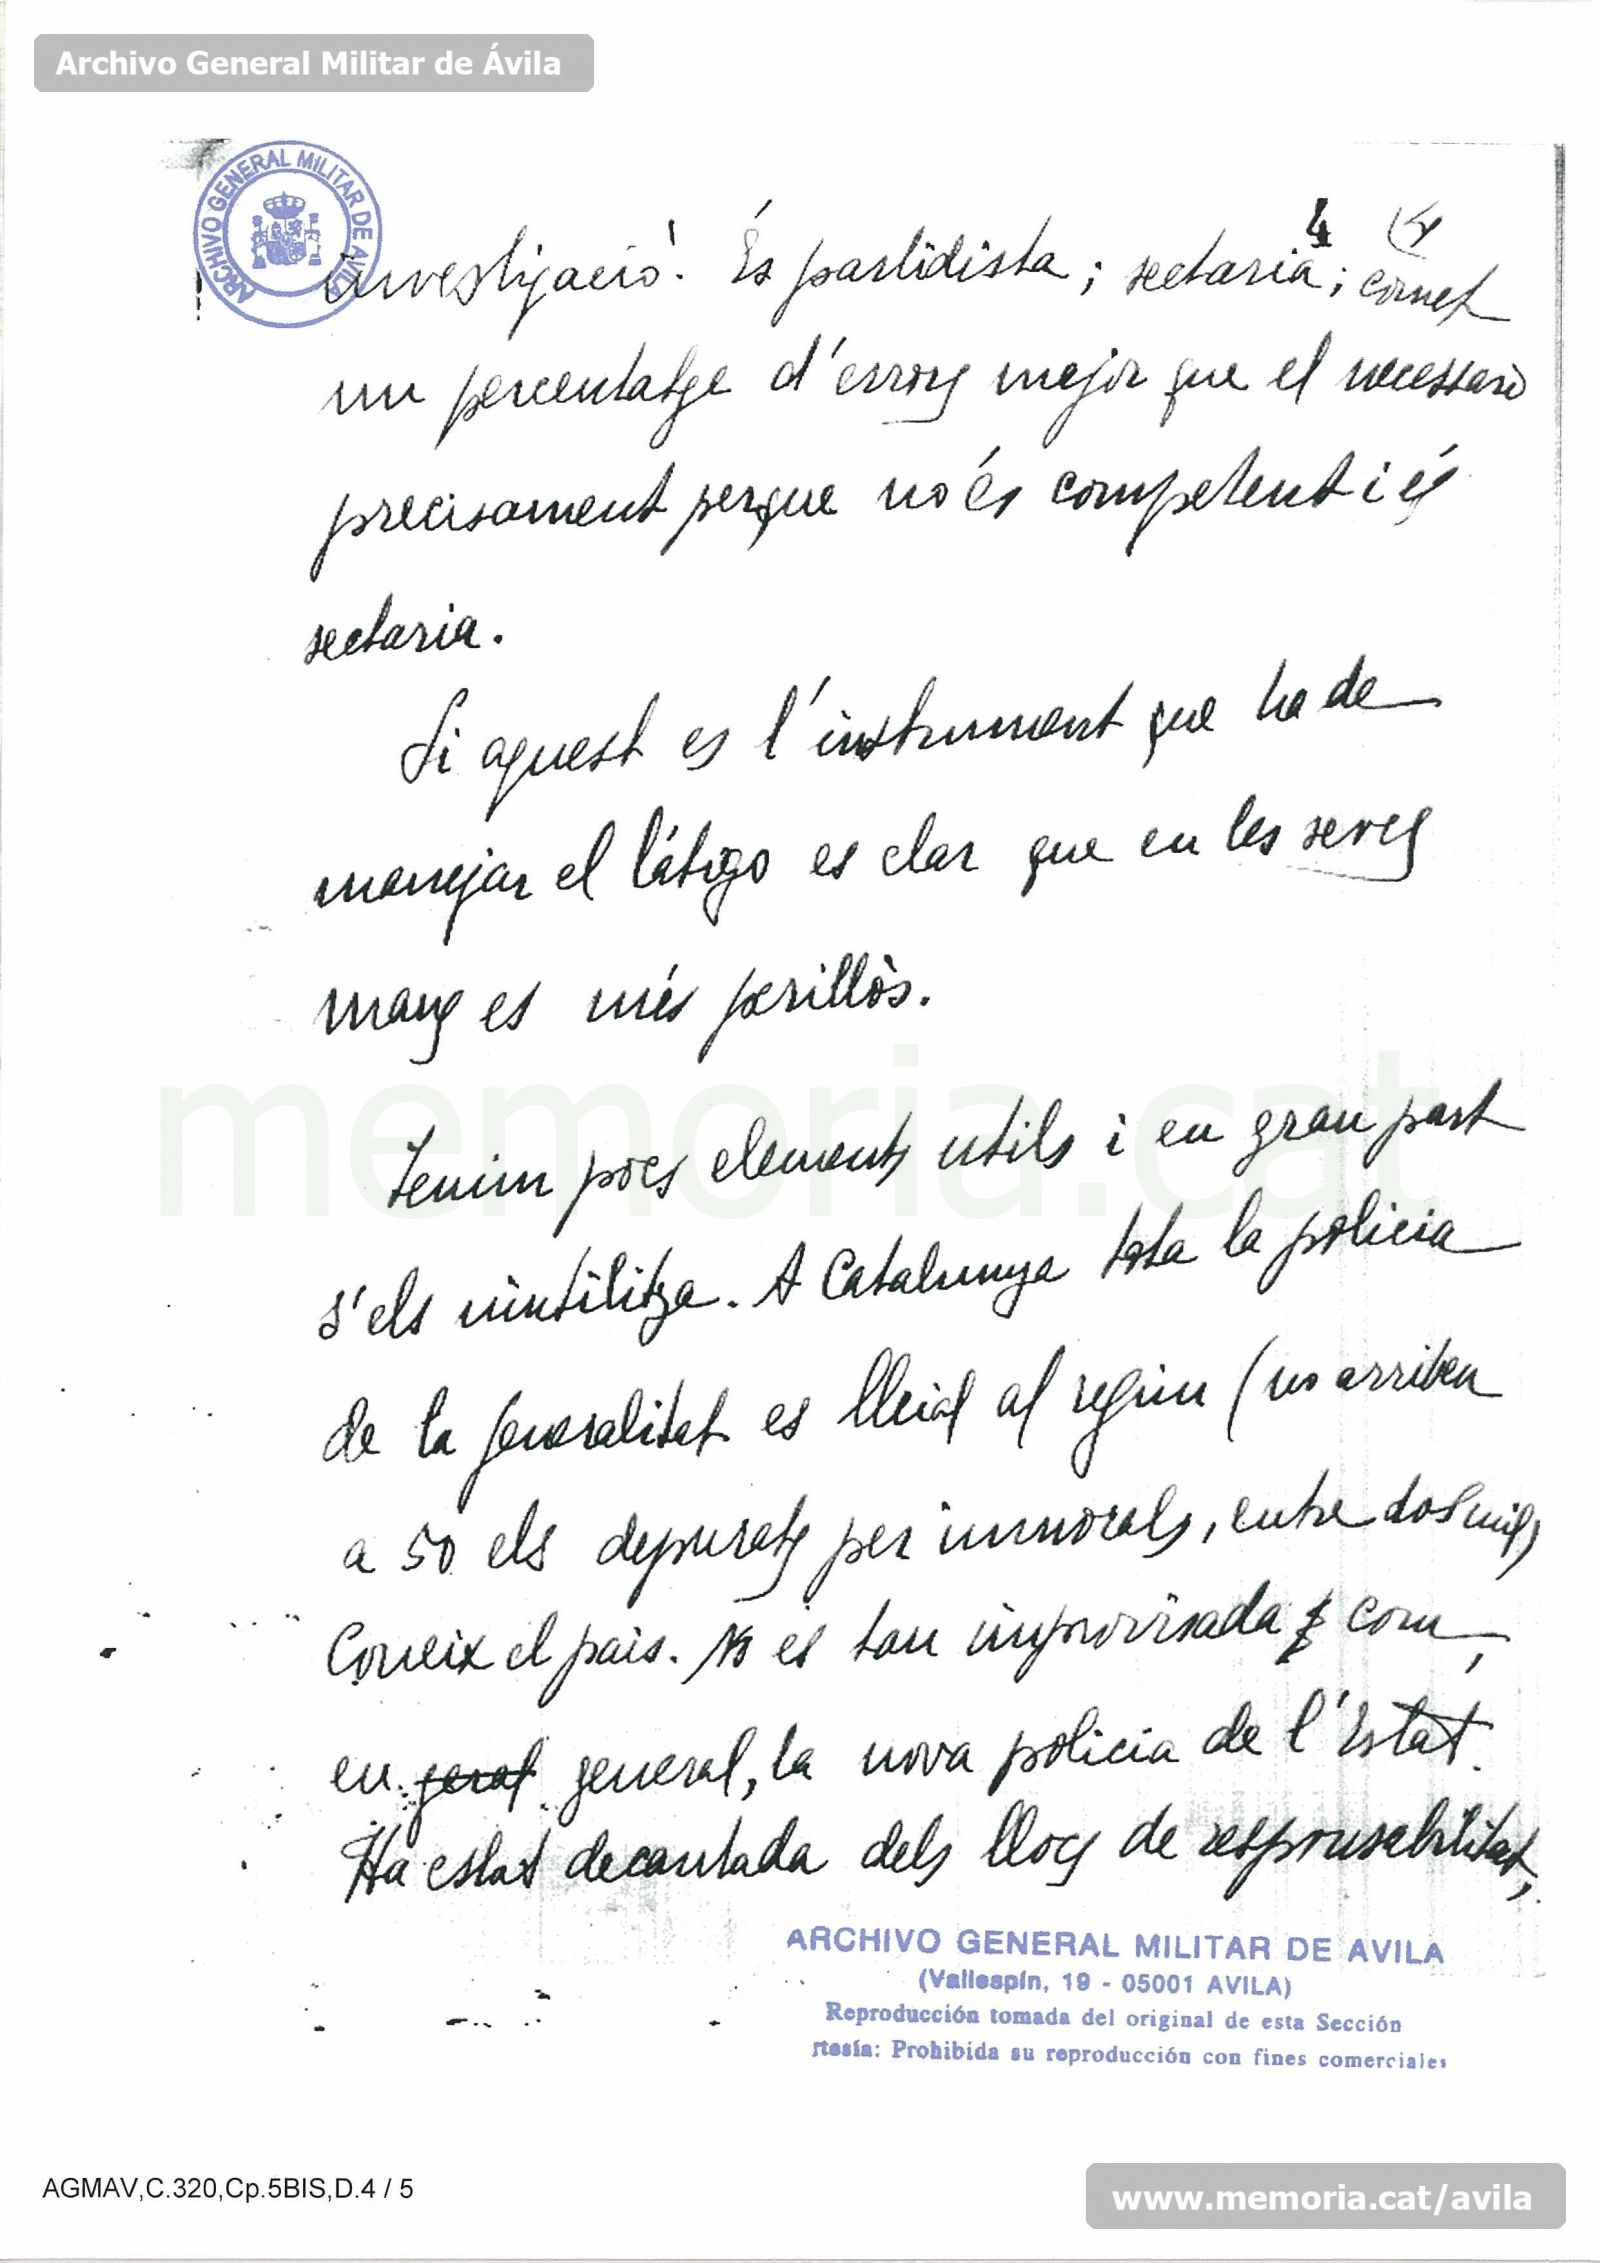 Archivo General Militar de Ávila
ARCHIVO GENERAL MILITAR DE AVILA
4
investigació. És partidista; sectaria; comet
un percentatge d'errors mejor que el necessari
precisament perque no és competent i és
sectaria.
Si aquest es l'instrument que ha de
manejar el látigo es clar que en les seves
mans es més perillòs.
Tenim pocs elements utils i en gran part
s'els inutilitza. A Catalunya tota la policia
de la Generalitat es lleial al regim (no arriben
a 50 els depurats per inmorals, entre dos mil,
Coneix el pais. No es tan improvisada com,
en general, la nova policia de l'Estat.
Ha estat decantada dels llocs de responsabilitat,
ARCHIVO GENERAL MILITAR DE AVILA
(Vallespín, 19 - 05001 AVILA)
Reproducción tomada del original de esta Sección
rtesía: Prohibida su reproducción con fines comerciales
memoria.cat
AGMAV,C.320,Cp.5BIS,D.4 / 5
www.memoria.cat/avila